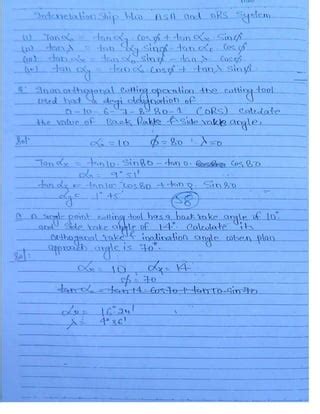 Interrelation Ship b/w ASA and ORS System
(i) Tan αo = tan αy cos φ + tan αx sin φ
(ii) tan λ = tan αy sin φ - tan αx cos φ
(iii) tan αx = tan αo sin φ - tan λ cos φ
(iv) tan αy = tan αo cos φ + tan λ sin φ
In an orthogonal cutting operation the cutting tool
used had a designation of
0-10-6-7-8-80-1 (ORS) calculate
the value of Back Rake & Side rake angle.
Sol:
α = 10 φ = 80 λ = 0
Tan αx = tan 10. Sin 80 - tan 0. cos 80
αx = 9° 51'
tan αy = tan 10. cos 80 + tan 0. Sin 80
αy = 1° 45'
Q. A single point cutting tool has a back rake angle of 10°
and side rake angle of 14° calculate its
orthogonal rake & inclination angle when plan
approach angle is 70°.
Sol:
= 10 = 14
φ = 70
= 16° 24'
λ = 4° 36'